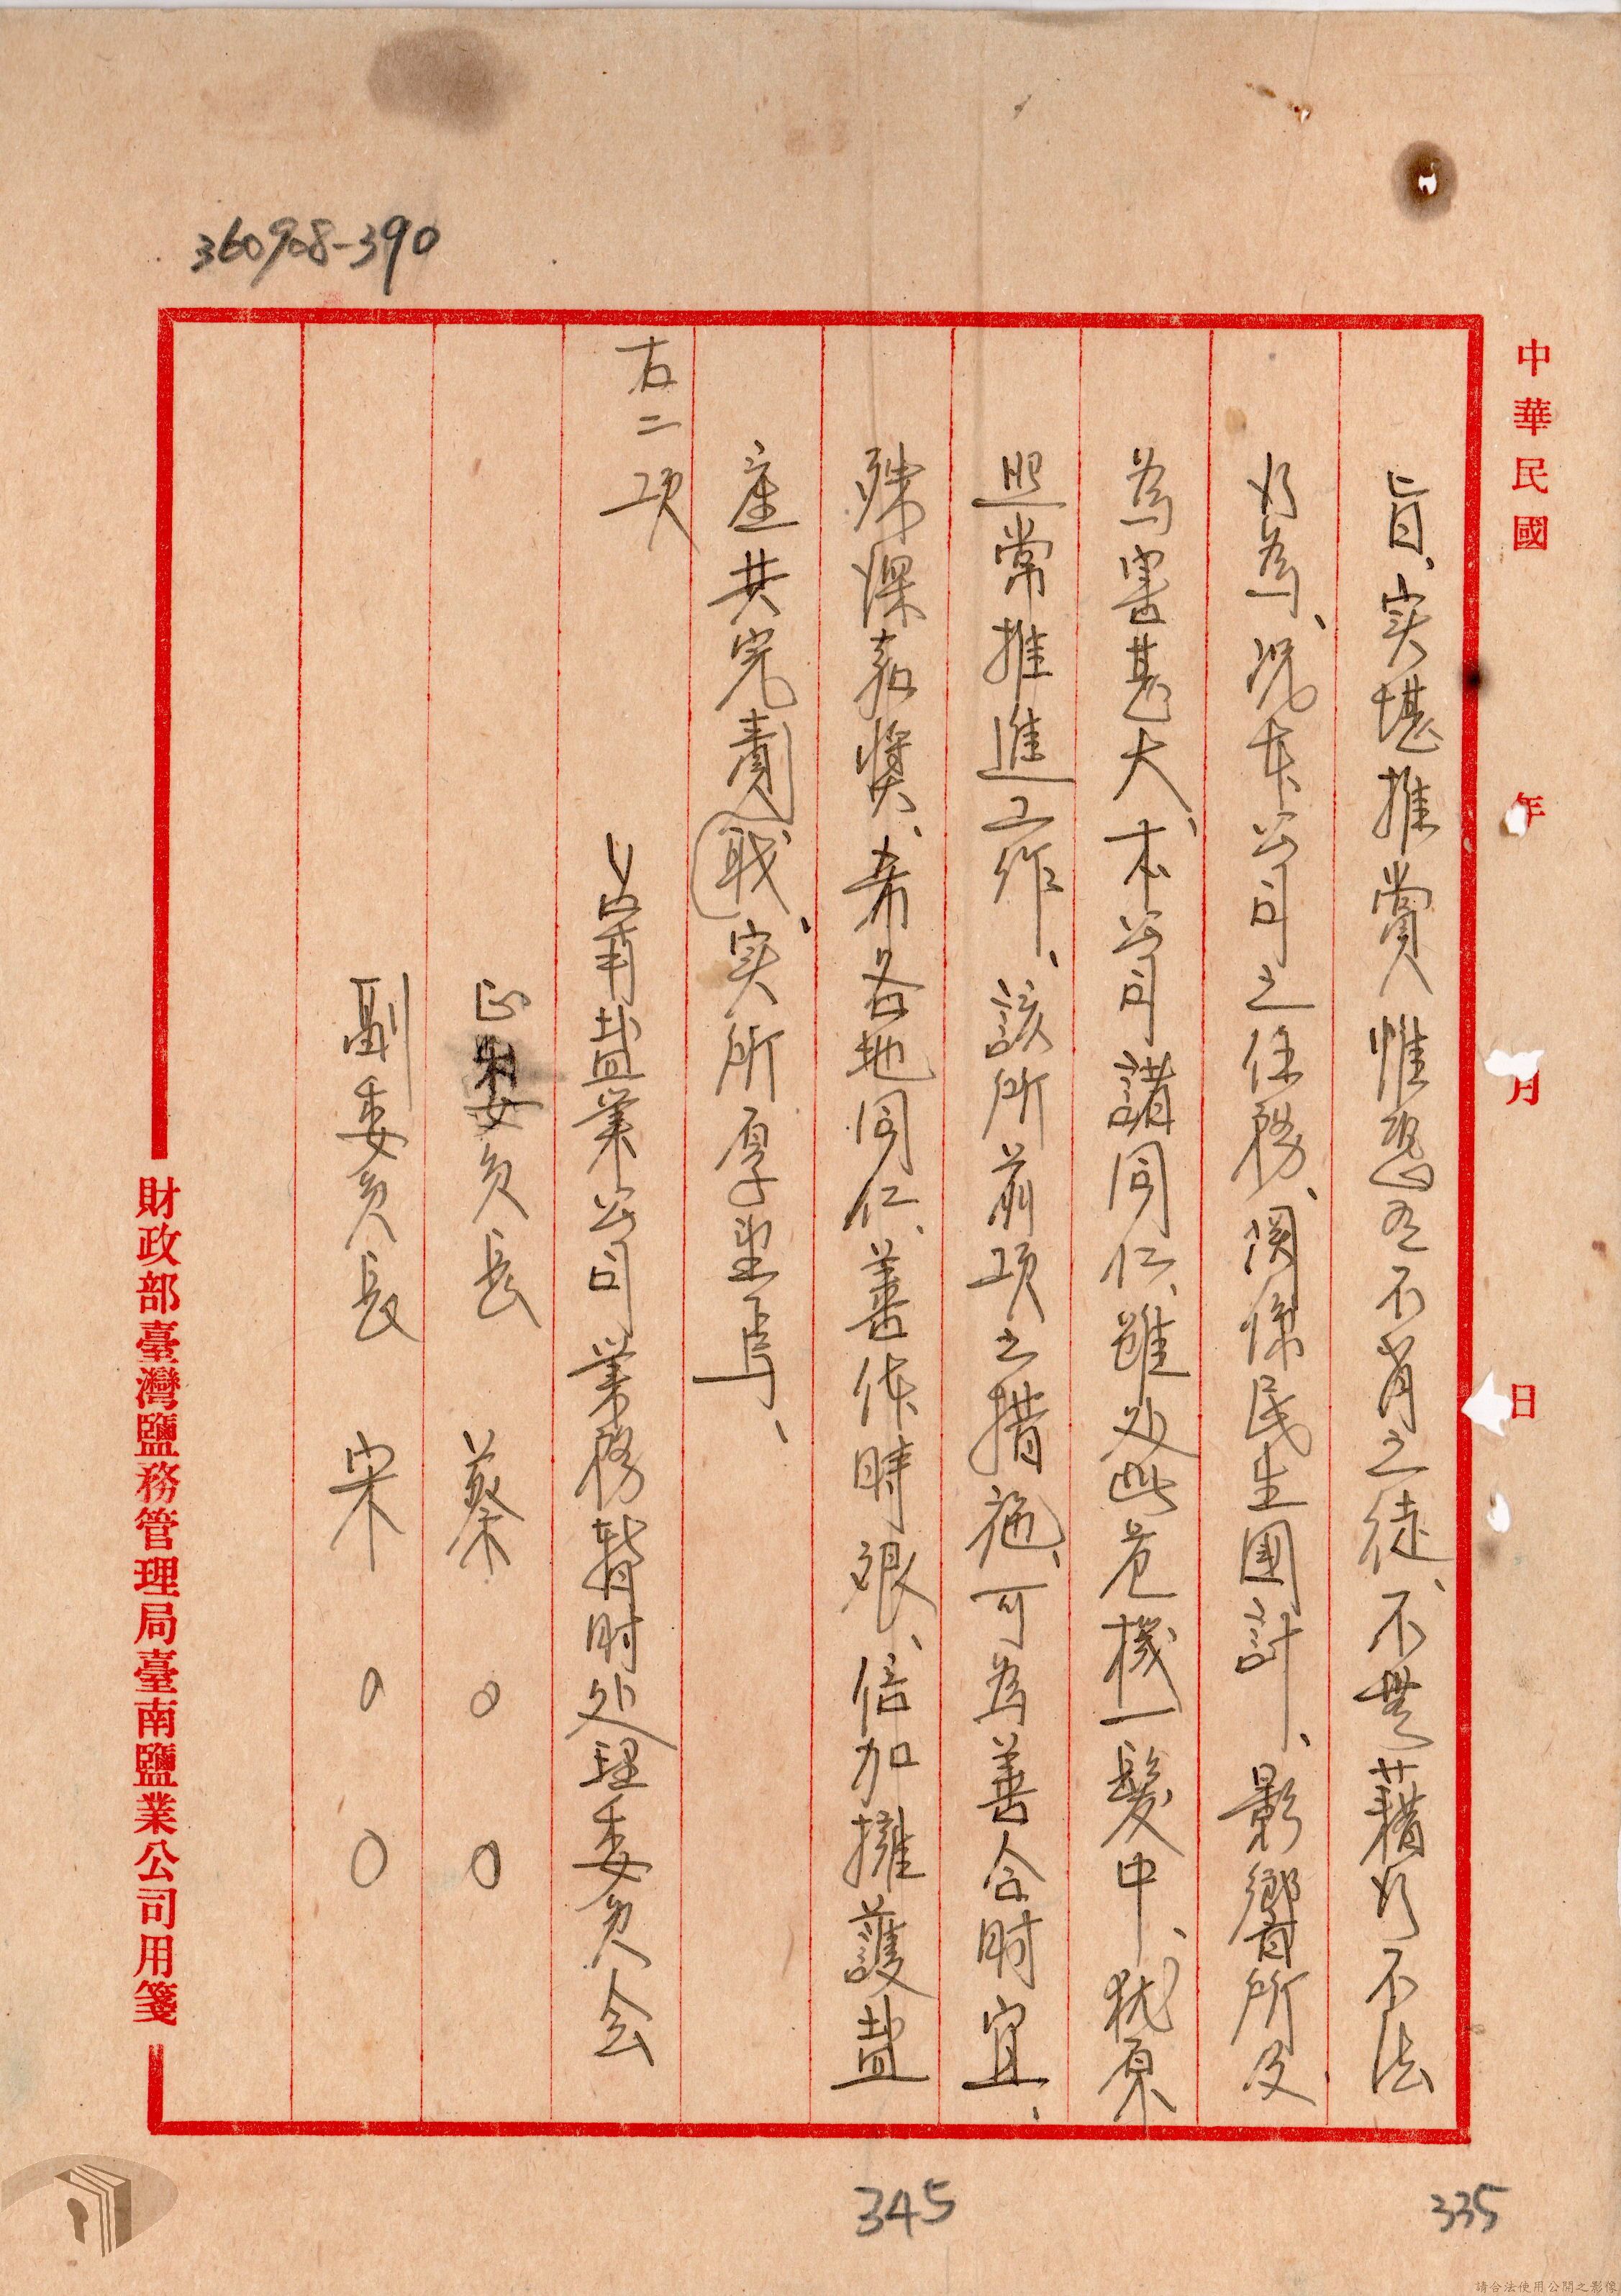 360908-390
中華民國　年　月　日
旨、实堪推賞惟恐有不肖之徒、不無藉行不法
行為、况本公司之任務、関係民生国計、影響所及
為害甚大、本公司諸同仁、雖处此危機一髮中、犹原
照常推進工作、該所前項之措施、可為善合时宜、
殊深嘉奬、希各地同仁、善体時艰、倍加擁護盐
産共完責職、实所厚望焉、
右二項
台南盐業公司業務暫时处理委员会
正委员長　蔡〇〇
副委員長　宋〇〇
財政部臺灣鹽務管理局臺南鹽業公司用箋
345
335
請合法使用公開之影像